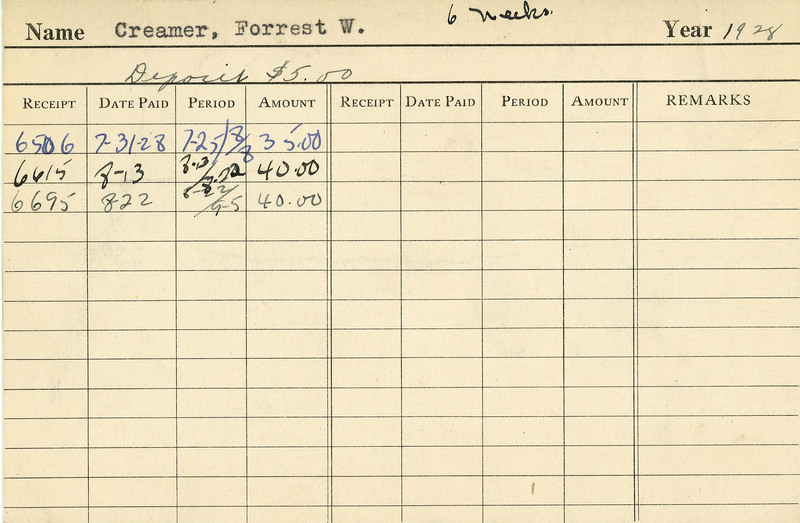 6 weeks.
Name Creamer, Forrest W. Year 1928
Deposit $5.00
RECEIPT DATE PAID PERIOD AMOUNT RECEIPT DATE PAID PERIOD AMOUNT REMARKS
6506 7-31-28 7-25/8/8 35.00
6615 8-13 8-13/8-22 40.00
6695 8-22 8-22/9-5 40.00